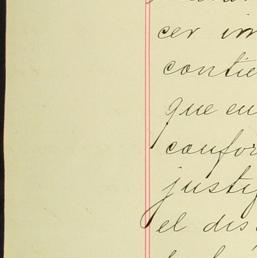 cer im
contie
que en
confor
justif
el dis